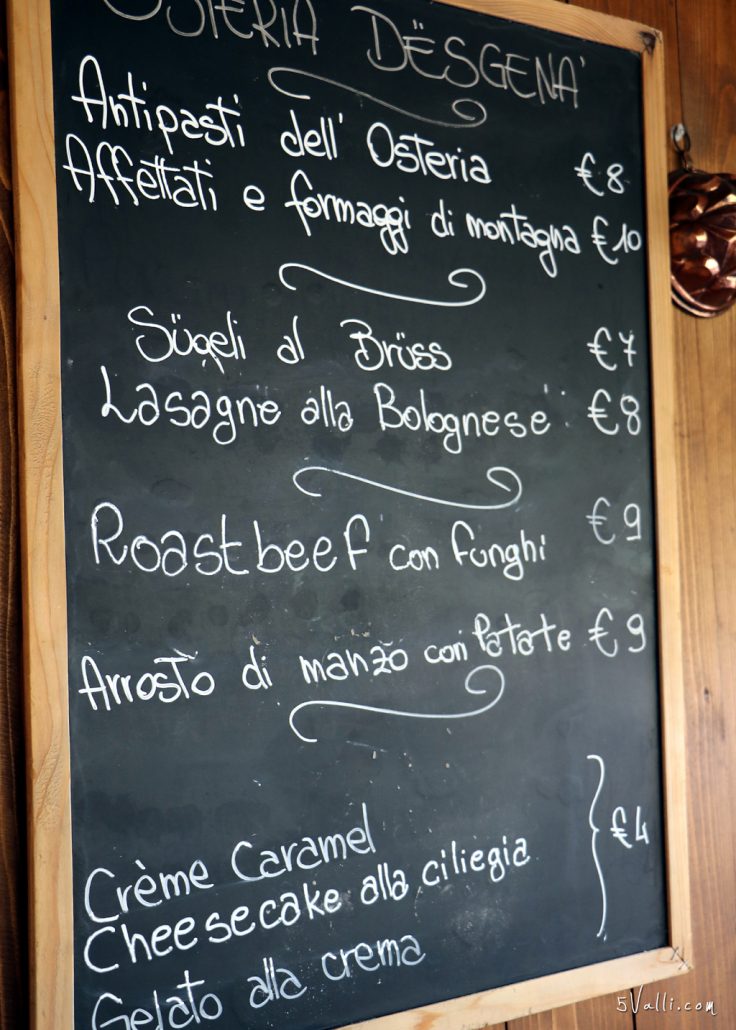 OSTERIA DËSGENA'
Antipasti dell' Osteria €8
Affettati e formaggi di montagna €10
Sügeli al Brüss €7
Lasagne alla Bolognese €8
Roastbeef con funghi €9
Arrosto di manzo con Patate €9
Crème Caramel
Cheesecake alla ciliegia €4
Gelato alla crema
5Valli.com